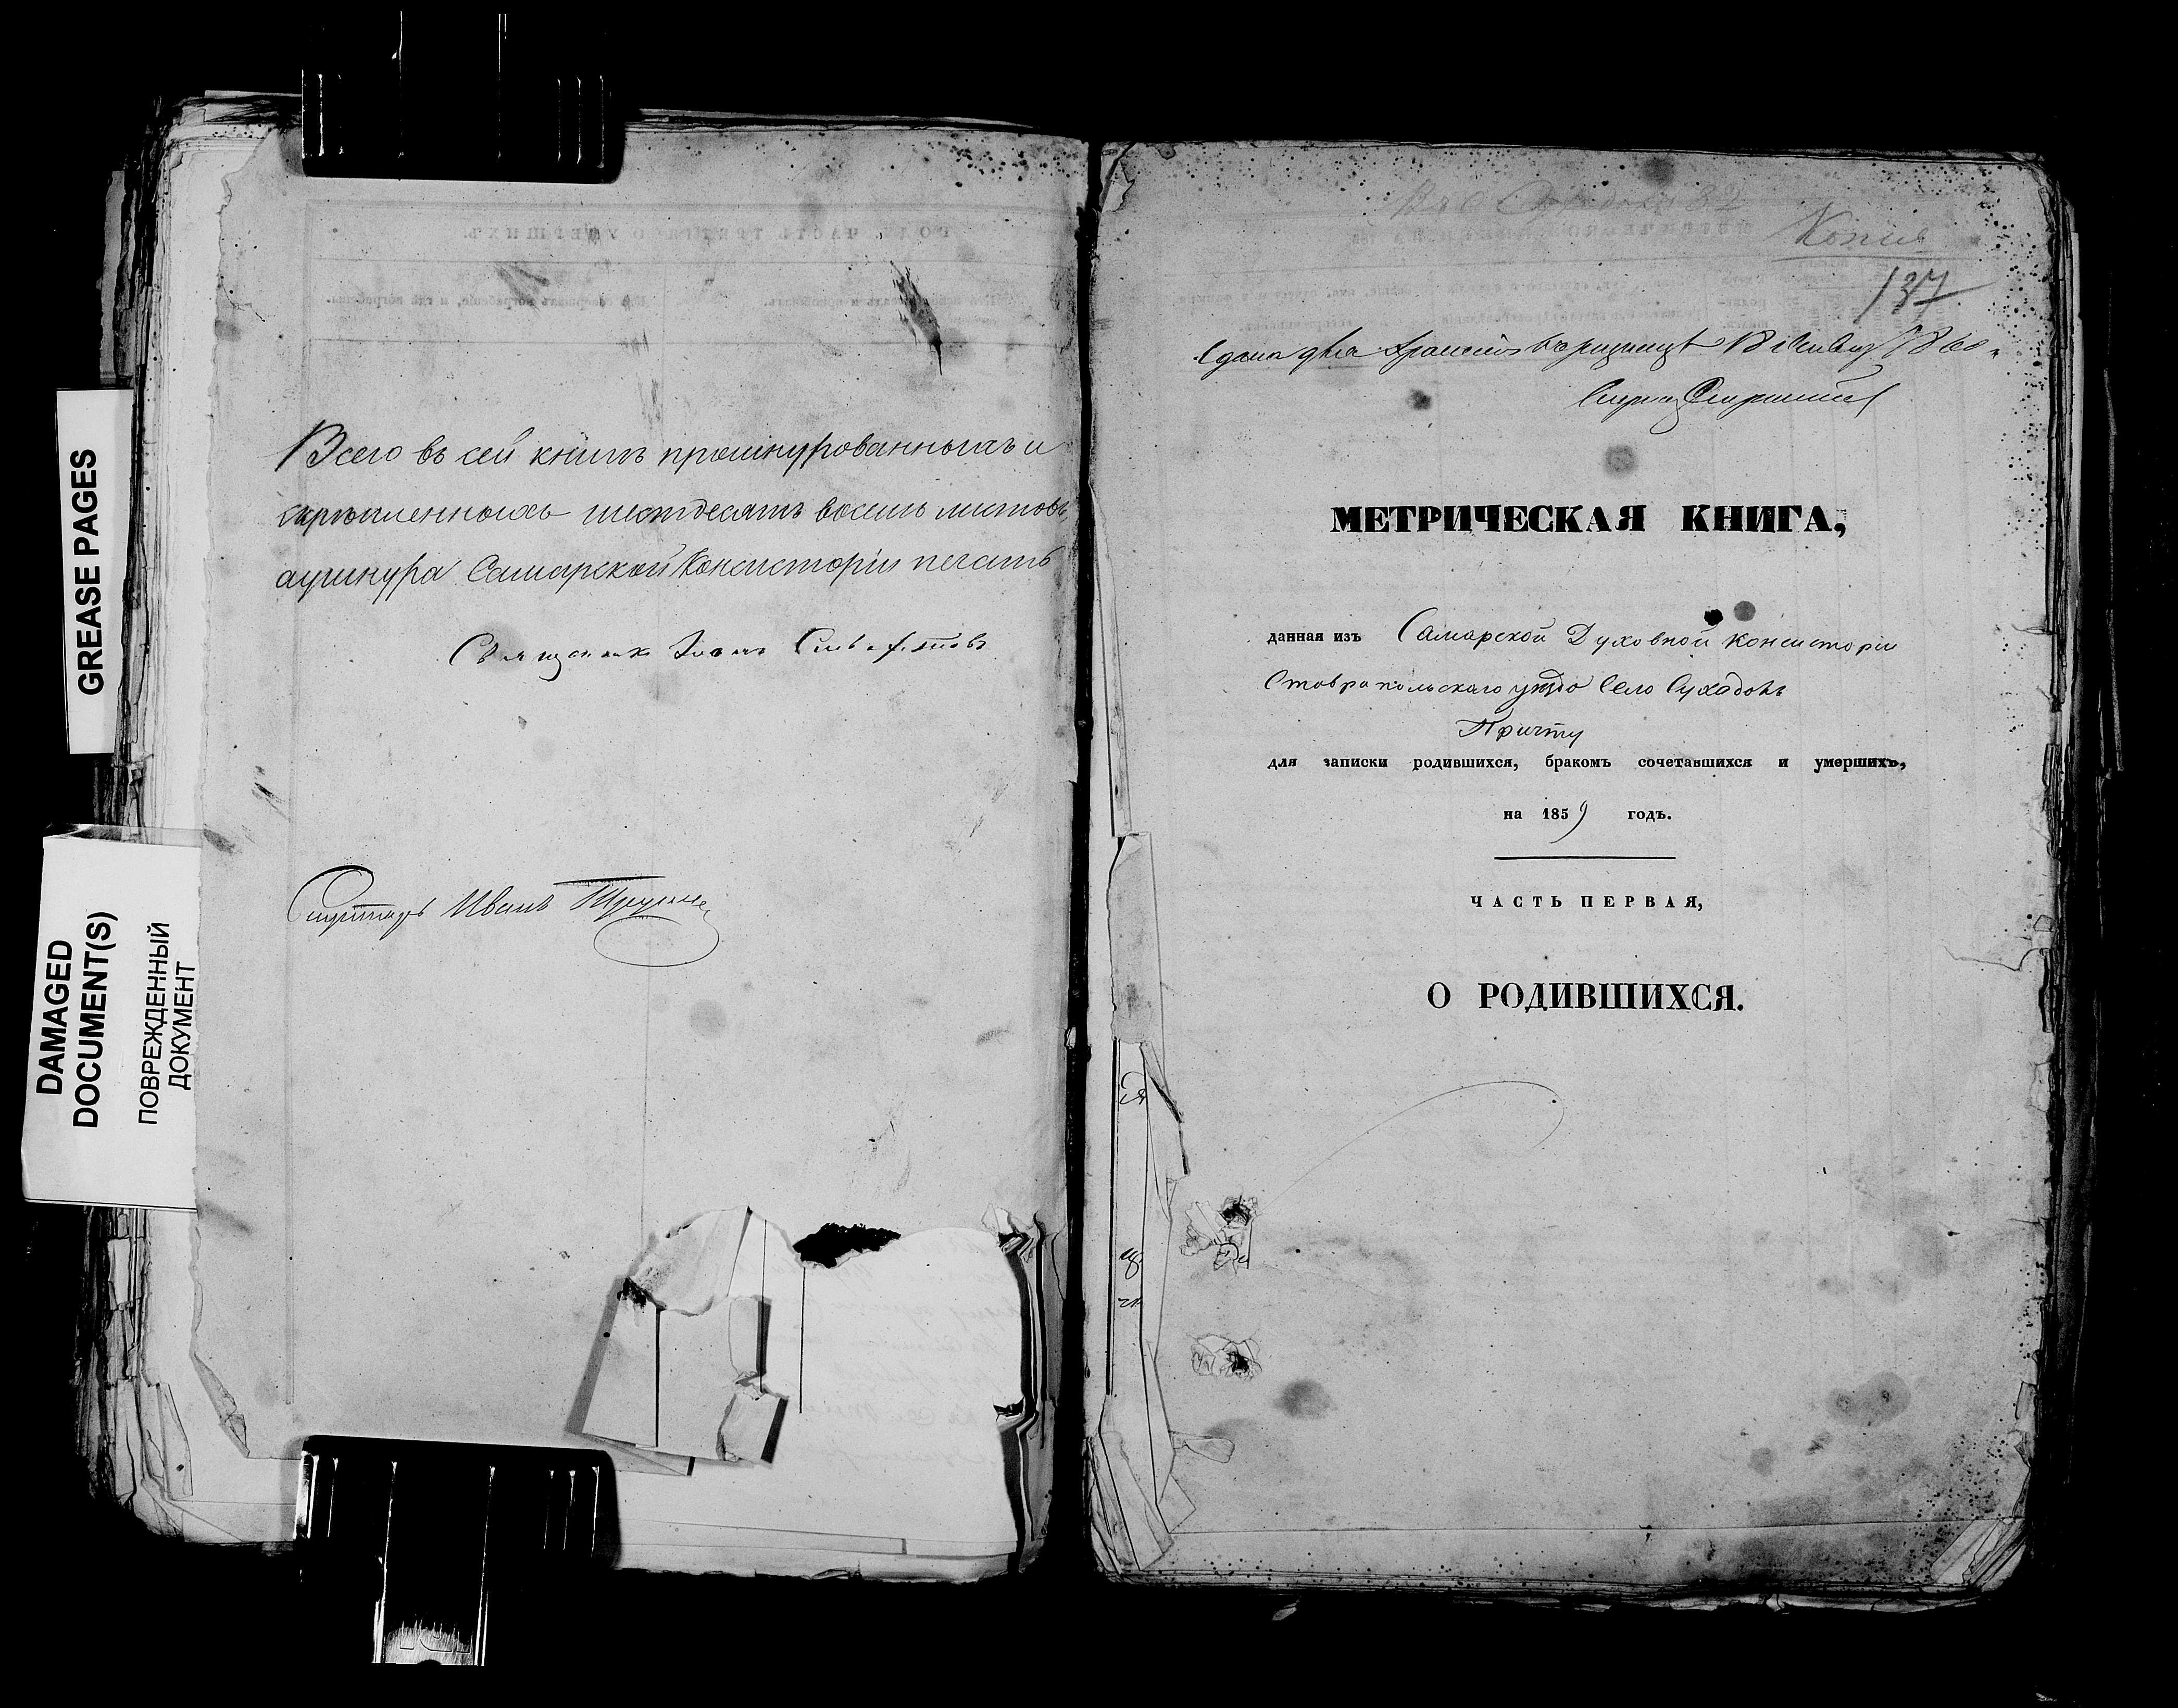 GREASE PAGES
DAMAGED
DOCUMENT(S)
ПОВРЕЖДЕННЫЙ
ДОКУМЕНТ
Всего въ сей книгѣ прошнурованныхъ и
скрѣпленныхъ шестдесятъ восемь листовъ,
а у шнура Самарской Консисторіи печать
Священникъ Іоаннъ
Секретарь Иванъ
Копия
137
Сдана для храненія 1860
МЕТРИЧЕСКАЯ КНИГА,
данная изъ Самарской Духовной Консисторіи
Ставропольскаго уезда Село Суходолъ
Причту
для записки родившихся, бракомъ сочетавшихся и умершихъ,
на 1859 годъ.
ЧАСТЬ ПЕРВАЯ,
О РОДИВШИХСЯ.